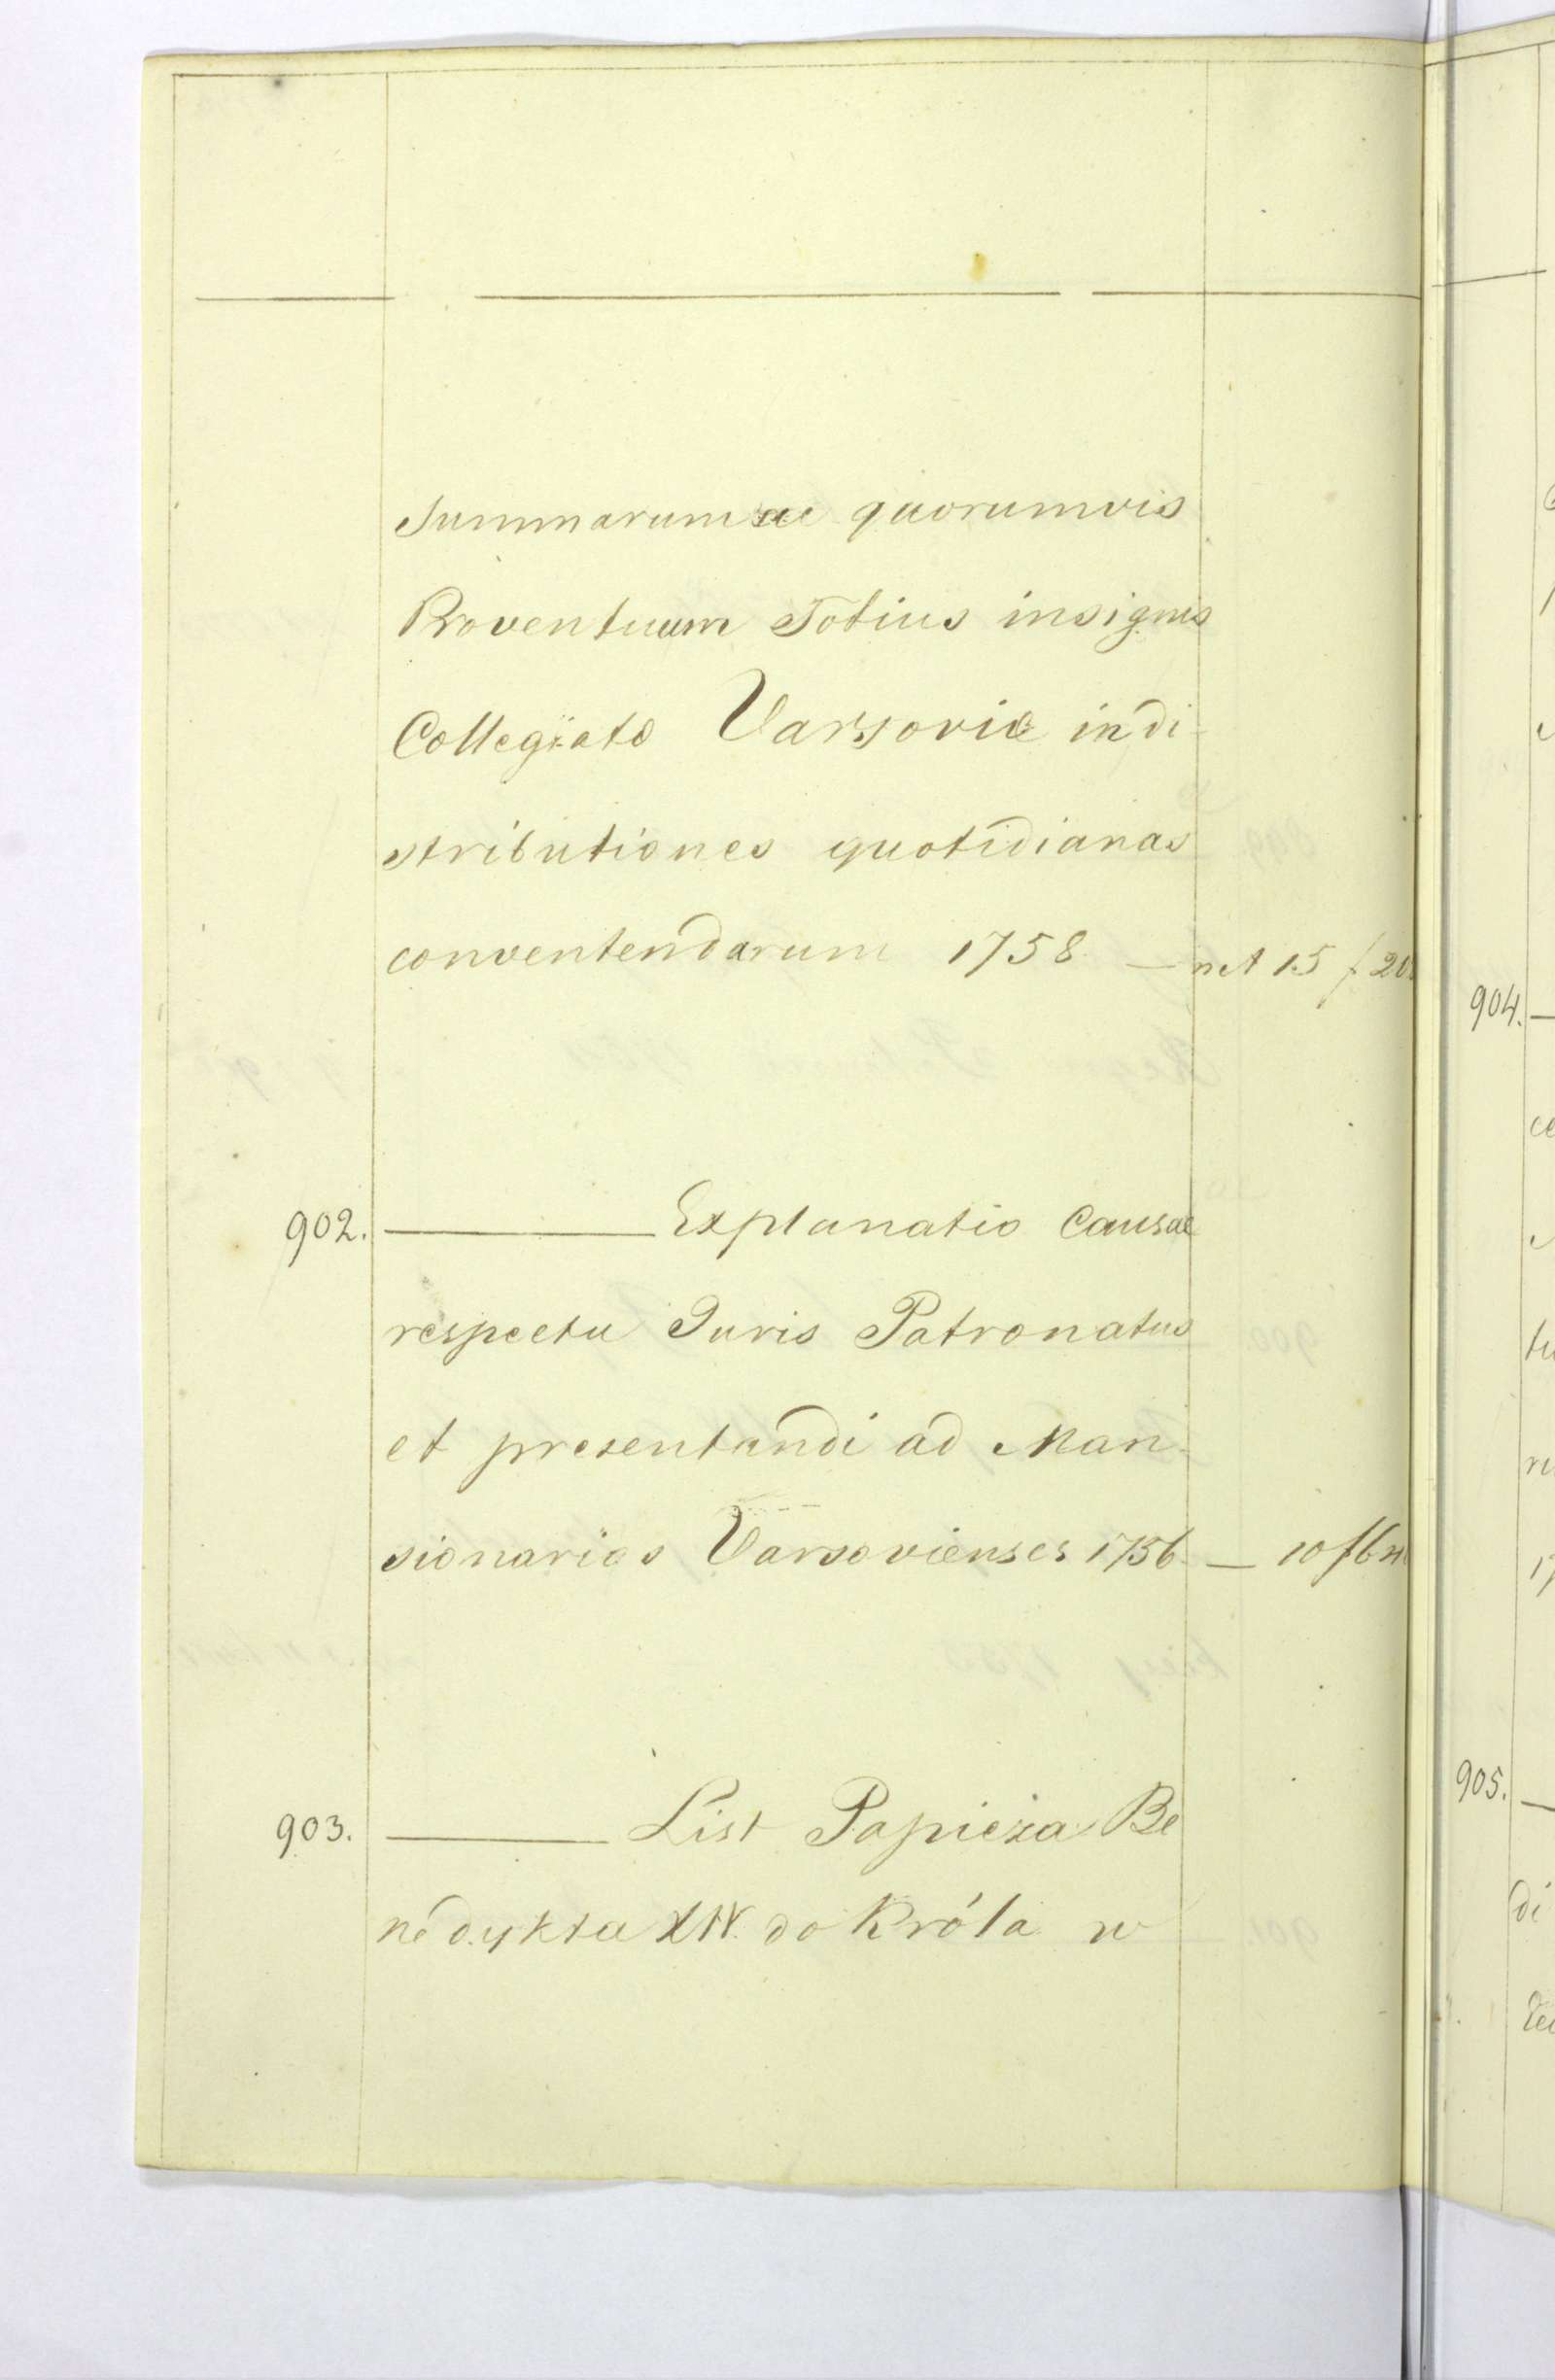 Summarum ac quorumvis
Proventuum Totius insignis
Collegiate Varsovie indi-
stributiones quotidianas
conventendarum 1758 — net 15 f 20
902. ——— Explanatio Causae
respectu Juris Patronatus
et presentandi ad Man-
sionarias Varsovienses 1756 — 10 f
903. ——— List Papieża Be
nedykta XIV. do Króla w
904. —
905. —